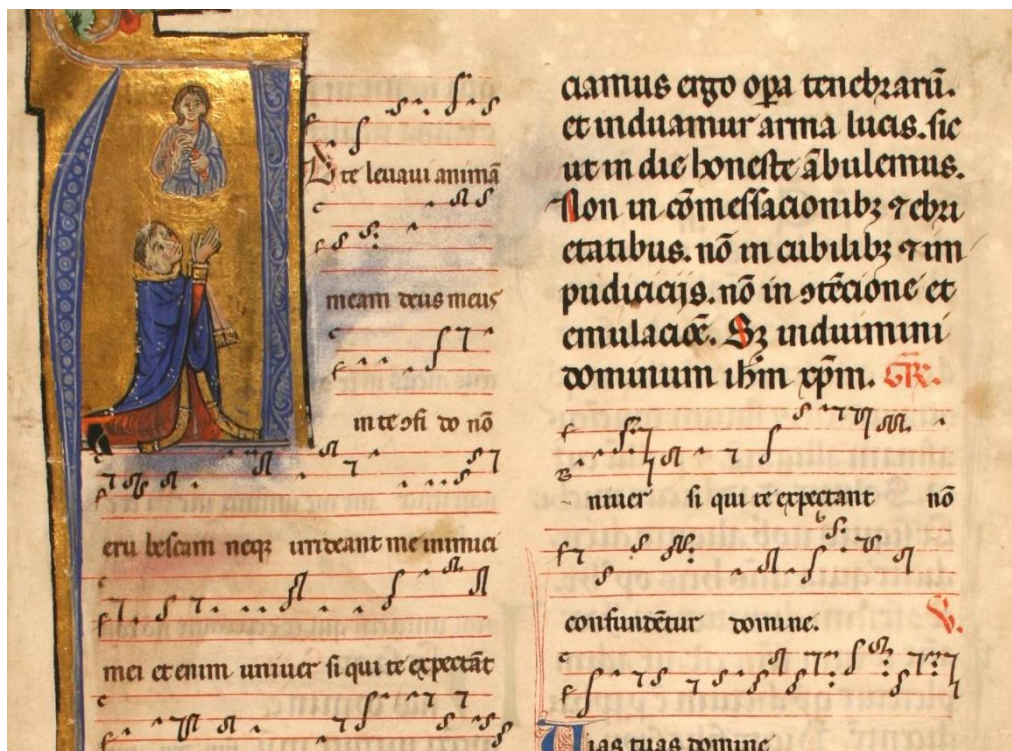 D te levavi animā
meam deus meus
in te ɔfi do nō
eru bescam neqꝫ irrideant me inimici
mei etenim univer si qui te expectāt
ciamus ergo opa tenebrarū.
et induamur arma lucis. sic
ut in die honeste ābulemus.
Non in cōmessacionibꝫ ⁊ ebri
etatibus. nō in cubilibꝫ ⁊ im
pudicicijs. nō in ɔtēcione et
emulaciōe. Sꝫ induimini
dominum ihm xpm. GR.
niver si qui te expectant nō
confundētur domine. V.
Vias tuas domine